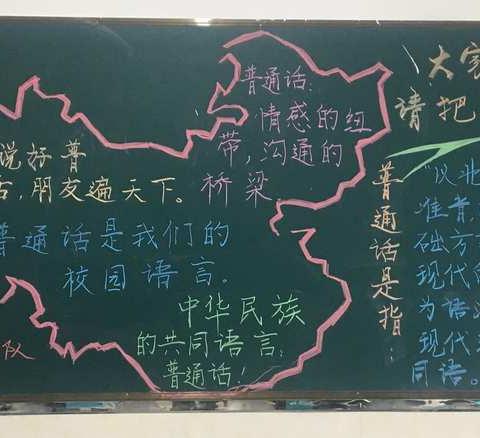 普通话:
情感的纽
带,沟通的
桥梁
说好普
话,朋友遍天下。
普通话是我们的
校园语言。
中华民族
的共同语言:
普通话!
队
大家
请把
普通话是指:
"以北
准音,
础方
现代
为语
现代
同语。